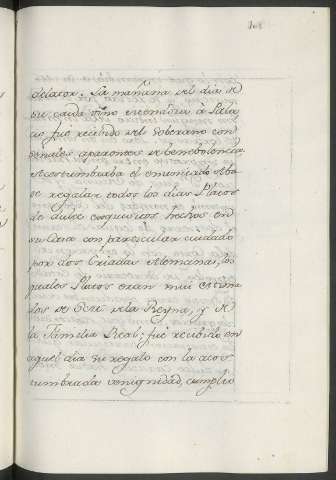 delator. La mañana del dia de
su caida vino
fue recibido del Soberano con
señales aparentes de benevolencia.
Acostumbraba el enunciado Aba
te regalar todos los dias Platos
de dulce exquisitos hechos en
su Casa con particular cuidado
por dos Criadas Alemanas, los
quales Platos eran mui estima
dos de este, de la Reyna, y de
la Familia Real; fue recibido en
aquel dia su regalo con la acos
tumbrada venignidad, cumplio